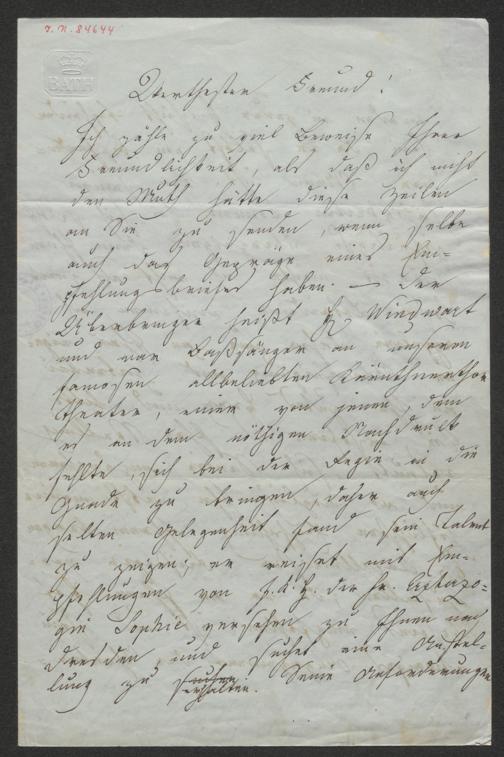 J. N. 84644
BATH
Werthester Freund!
Ich zähle zu viel Beweise Ihrer
Freundlichkeit, als daß ich nicht
den Muth hätte diese Zeilen
an Sie zu senden, wenn selbe
auch das Gepräge eines Em-
pfehlungsbriefes haben. — Der
Überbringer heißt H. Windwart
und war Baßsänger an unserem
famosen allbeliebten Kärnthnerthor
Theater, einer von jenen, dem
es an dem nöthigen Nachdruck
fehlte, sich bei der Regie in die
Gnade zu bringen, daher auch
selten Gelegenheit fand sein Talent
zu zeigen; er reiset mit Em-
pfehlungen von J. K. H. der Fr. Erzherzo-
gin Sophie versehen zu Ihnen nach
Dresden, und suchet eine Anstel-
lung zu erhalten. Seine Anforderungen